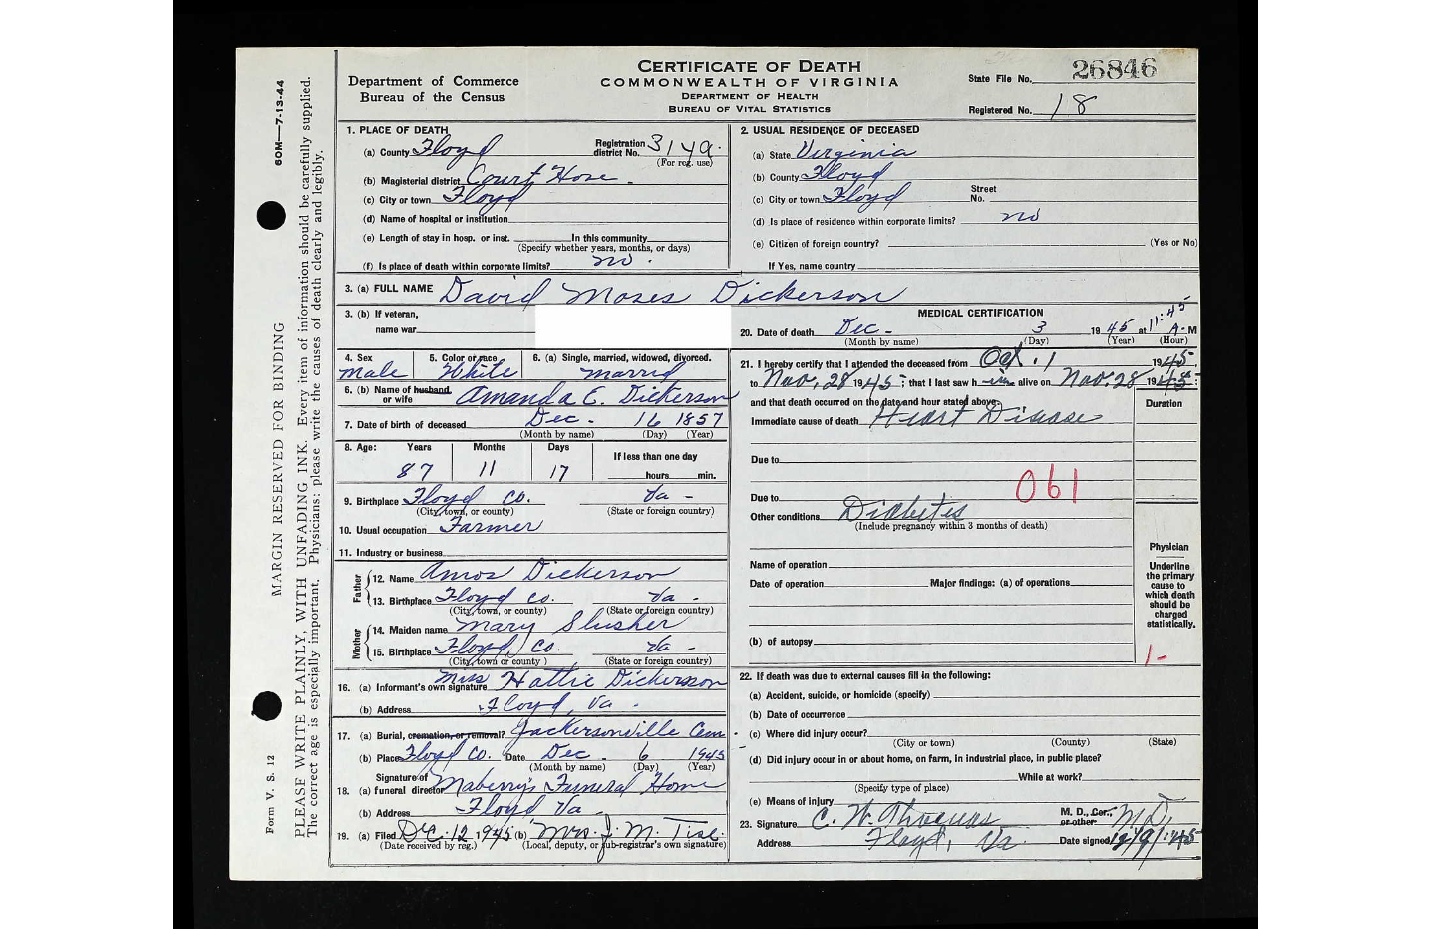 CERTIFICATE OF DEATH
COMMONWEALTH OF VIRGINIA
DEPARTMENT OF HEALTH
BUREAU OF VITAL STATISTICS
Department of Commerce
Bureau of the Census
State File No. 26846
Registered No. 18
60M—7-13-44
MARGIN RESERVED FOR BINDING
Form V. S. 12
PLEASE WRITE PLAINLY, WITH UNFADING INK. Every item of information should be carefully supplied.
The correct age is especially important. Physicians: please write the causes of death clearly and legibly.
1. PLACE OF DEATH
(a) County Floyd Registration district No. 314a.
(For reg. use)
(b) Magisterial district Court Hose
(c) City or town Floyd
(d) Name of hospital or institution
(e) Length of stay in hosp. or inst. In this community
(Specify whether years, months, or days)
(f) Is place of death within corporate limits? no
2. USUAL RESIDENCE OF DECEASED
(a) State Virginia
(b) County Floyd
(c) City or town Floyd Street No.
(d) Is place of residence within corporate limits? no
(e) Citizen of foreign country? (Yes or No)
If Yes, name country
3. (a) FULL NAME David Moses Dickerson
3. (b) If veteran,
name war
4. Sex 5. Color or race 6. (a) Single, married, widowed, divorced.
male White married
6. (b) Name of husband or wife Amanda C. Dickerson
7. Date of birth of deceased Dec - 16 1857
(Month by name) (Day) (Year)
8. Age: Years Months Days If less than one day
87 11 17 hours min.
9. Birthplace Floyd Co. Va -
(City, town, or county) (State or foreign country)
10. Usual occupation Farmer
11. Industry or business
Father
12. Name Amos Dickerson
13. Birthplace Floyd Co. Va -
(City, town, or county) (State or foreign country)
Mother
14. Maiden name Mary Slusher
15. Birthplace Floyd Co Va -
(City, town or county) (State or foreign country)
16. (a) Informant's own signature Miss Hattie Dickerson
(b) Address Floyd, Va -
17. (a) Burial, cremation, or removal? Jackersonville Cem
(b) Place Floyd Co. Date Dec - 6 1945
(Month by name) (Day) (Year)
18. (a) Signature of funeral director Maberry's Funeral Home
(b) Address Floyd Va
19. (a) Filed Dec. 12, 1945 (b) Mrs. J. M. Tise
(Date received by reg.) (Local, deputy, or sub-registrar's own signature)
MEDICAL CERTIFICATION
20. Date of death Dec - 3 1945 at 11:45 A. M
(Month by name) (Day) (Year) (Hour)
21. I hereby certify that I attended the deceased from Oct. 1 1945,
to Nov. 28 1945; that I last saw him alive on Nov. 28 1945;
and that death occurred on the date and hour stated above.
Duration
Immediate cause of death Heart Disease
Due to
061
Due to
Other conditions Diabetes
(Include pregnancy within 3 months of death)
Name of operation
Date of operation Major findings: (a) of operations
(b) of autopsy
Physician
Underline
the primary
cause to
which death
should be
charged
statistically.
1-
22. If death was due to external causes fill in the following:
(a) Accident, suicide, or homicide (specify)
(b) Date of occurrence
(c) Where did injury occur?
(City or town) (County) (State)
(d) Did injury occur in or about home, on farm, in industrial place, in public place?
While at work?
(Specify type of place)
(e) Means of injury
23. Signature C. W. Thomas M. D., Cor., or other M.D.
Address Floyd, Va. Date signed 12/9/45